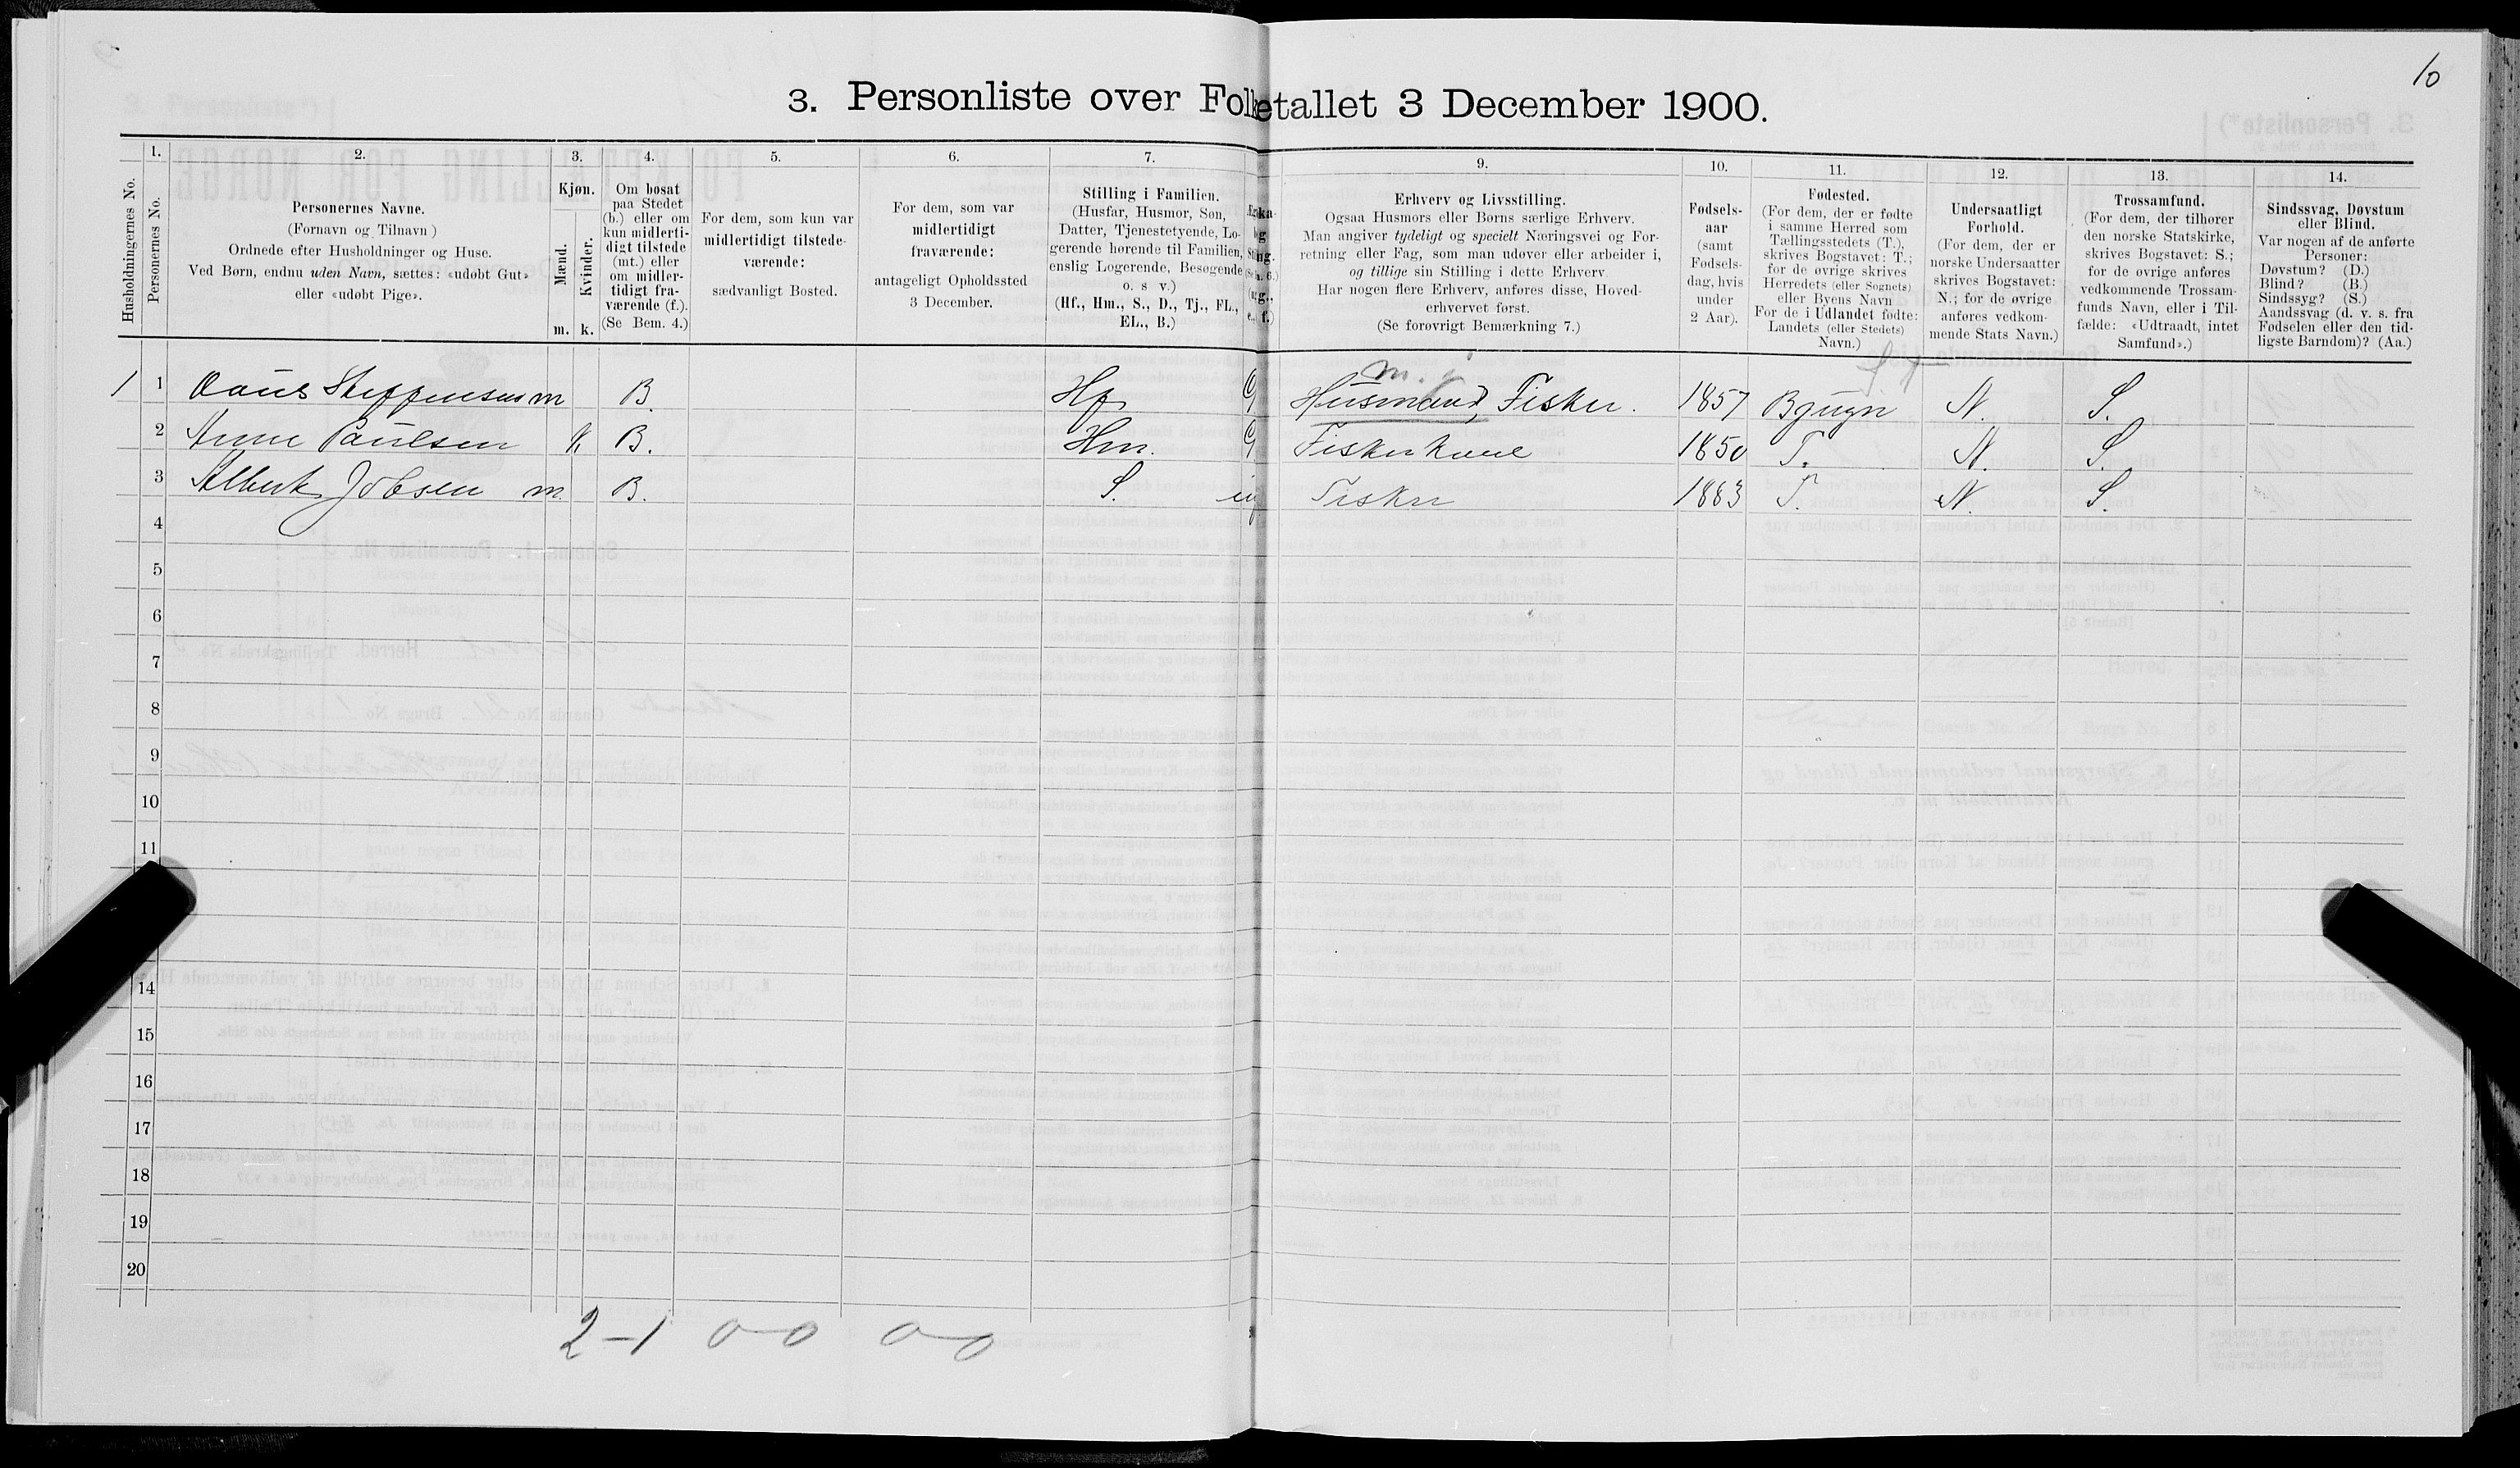 10
3. Personliste over Folketallet 3 December 1900.
Husholdningernes No.
1.
Personernes No.
2.
Personernes Navne.
(Fornavn og Tilnavn)
Ordnede efter Husholdninger og Huse.
Ved Børn, endnu uden Navn, sættes: «udøbt Gut»
eller «udøbt Pige».
3.
Kjøn.
Mænd.
Kvinder.
m. k.
4.
Om bosat
paa Stedet
(b.) eller om
kun midlerti-
digt tilstede
(mt.) eller
om midler-
tidigt fra-
værende (f.).
(Se Bem. 4.)
5.
For dem, som kun var
midlertidigt tilstede-
værende:
sædvanligt Bosted.
6.
For dem, som var
midlertidigt
fraværende:
antageligt Opholdssted
3 December.
7.
Stilling i Familien.
(Husfar, Husmor, Søn,
Datter, Tjenestetyende, Lo-
gerende hørende til Familien,
enslig Logerende, Besøgende
o. s v.)
(Hf., Hm., S., D., Tj., FL.,
EL., B.)
9.
Erhverv og Livsstilling.
Ogsaa Husmors eller Børns særlige Erhverv.
Man angiver tydeligt og specielt Næringsvei og For-
retning eller Fag, som man udøver eller arbeider i,
og tillige sin Stilling i dette Erhverv.
Har nogen flere Erhverv, anføres disse, Hoved-
erhvervet først.
(Se forøvrigt Bemærkning 7.)
10.
Fødsels-
aar
(samt
Fødsels-
dag, hvis
under
2 Aar).
11.
Fødested.
(For dem, der er fødte
i samme Herred som
Tællingsstedets (T.),
skrives Bogstavet: T.;
for de øvrige skrives
Herredets (eller Sognets)
eller Byens Navn
For de i Udlandet fødte:
Landets (eller Stedets)
Navn.)
12.
Undersaatligt
Forhold.
(For dem, der er
norske Undersaatter
skrives Bogstavet:
N.; for de øvrige
anføres vedkom-
mende Stats Navn.)
13.
Trossamfund.
(For dem, der tilhører
den norske Statskirke,
skrives Bogstavet: S.;
for de øvrige anføres
vedkommende Trossam-
funds Navn, eller i Til-
fælde: «Udtraadt, intet
Samfund».)
14.
Sindssvag, Døvstum
eller Blind.
Var nogen af de anførte
Personer:
Døvstum? (D.)
Blind? (B.)
Sindssyg? (S.)
Aandssvag (d. v. s. fra
Fødselen eller den tid-
ligste Barndom)? (Aa.)
m. j
1 1 Steffensen m B. Hf G Husmand, Fisker. 1857 Bjugn N. S.
2 Anne Paulsen k B. Hm. G Fiskerkone 1850 T. N. S.
3 Albert Jobsen m. B. S. ug Fisker 1883 T. N. S.
4
5
6
7
8
9
10
11
14
15
16
17
18
19
20
2-1 0-0 0-0